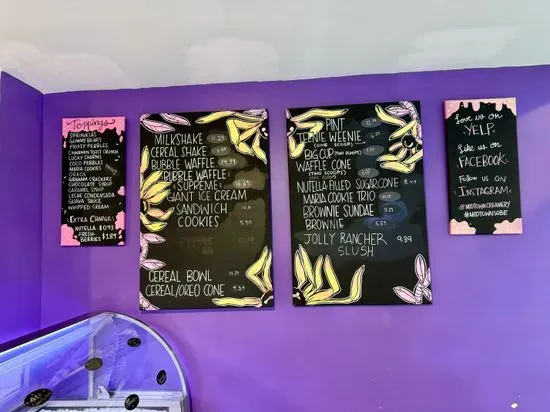 Toppings
SPRINKLES
GUMMY BEARS
FRUITY PEBBLES
CINNAMON TOAST CRUNCH
LUCKY CHARMS
COCO PEBBLES
MARIA COOKIES
OREO
GRAHAM CRACKERS
CHOCOLATE SYRUP
CARAMEL SYRUP
LECHERA
GUAVA SAUCE
WHIPPED CREAM
EXTRA CHARGE:
NUTELLA $0.93
FRESH BERRIES $1.89
MILKSHAKE 11.29
CEREAL SHAKE
BUBBLE WAFFLE 14.29
BUBBLE WAFFLE:
SUPREME
GIANT ICE CREAM
SANDWICH
COOKIES
CEREAL BOWL 11.29
CEREAL/OREO CONE 9.39
PINT
TEENIE WEENIE
(ONE SCOOP)
BIG CUP (TWO SCOOPS)
WAFFLE CONE
(TWO SCOOPS)
NUTELLA FILLED SUGARCONE 8.49
MARIA COOKIE TRIO
BROWNIE SUNDAE
BROWNIE
JOLLY RANCHER 9.39
SLUSH
Love us on
YELP
Like us on
FACEBOOK
Follow us on
INSTAGRAM
@MIDTOWNCREAMERY
#MIDTOWNSOBE